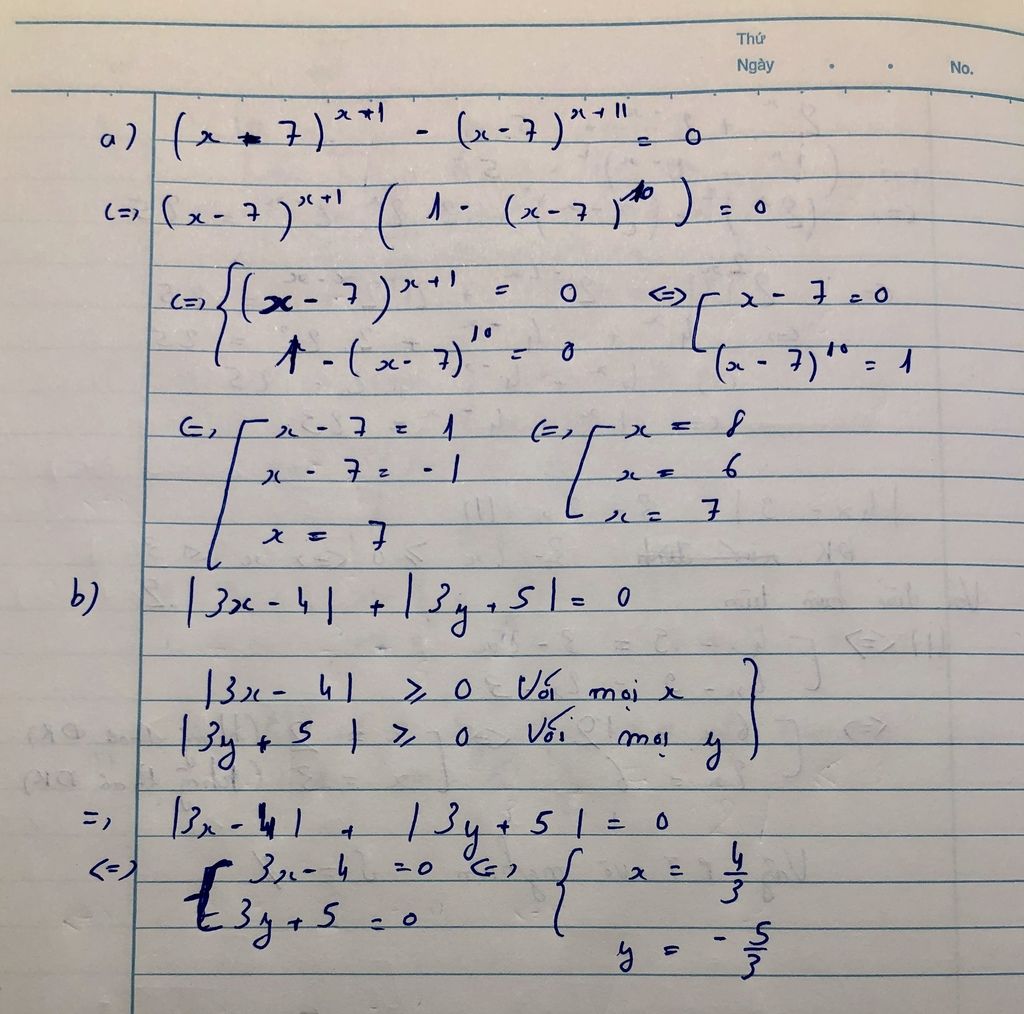 Thứ
Ngày . . No.
a) (x - 7)^{x+1} - (x-7)^{x+11} = 0
<=> (x-7)^{x+1} (1 - (x-7)^{10}) = 0
<=> { (x-7)^{x+1} = 0 <=> [ x - 7 = 0
1 - (x-7)^{10} = 0 (x-7)^{10} = 1
<=> [ x - 7 = 1 <=> [ x = 8
x - 7 = -1 x = 6
x = 7 x = 7
b) |3x-4| + |3y+5| = 0
|3x-4| ⩾ 0 Với mọi x }
|3y+5| ⩾ 0 Với mọi y
=> |3x-4| + |3y+5| = 0
<=> { 3x-4 = 0 <=> { x = 4/3
3y+5 = 0
y = - 5/3